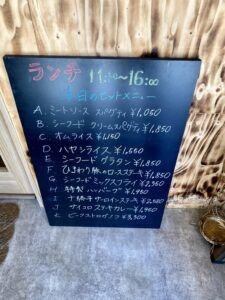 ランチ 11:30〜16:00
本日のセットメニュー
A. ミートソース スパゲティ ¥1,050
B. シーフード クリームスパゲティ ¥1,850
C. オムライス ¥1,150
D. ハヤシライス ¥1,550
E. シーフード グラタン ¥1,850
F ひまわり豚のロースステーキ ¥1,850
G. シーフードミックスフライ ¥2,350
H 特製 ハンバーグ ¥1,950
I 十勝牛サーロインステーキ
J サイコロステーキカレー ¥1,950
K ビーフストロガノフ ¥3,300